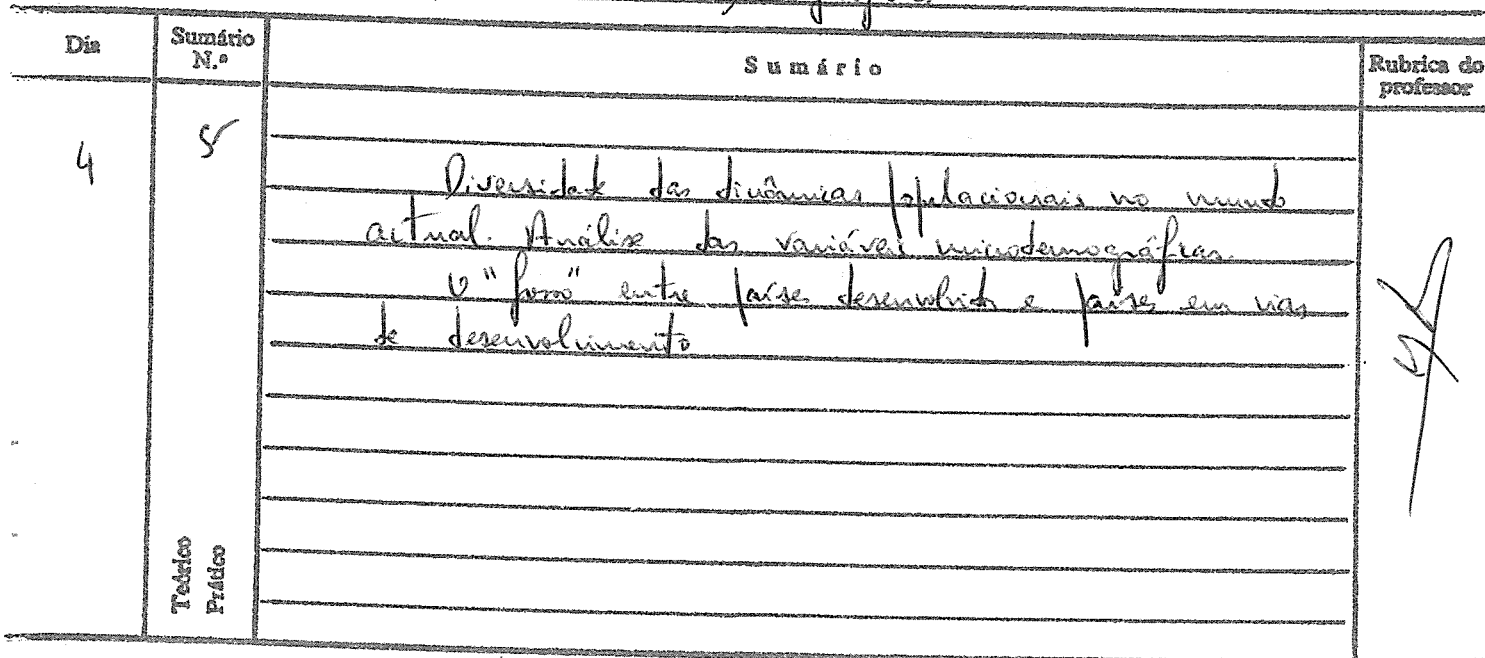 Dia
Sumário N.º
Sumário
Rubrica do professor
4
5
Diversidade das dinâmicas populacionais no mundo
actual. Análise das variáveis microdemográficas.
O "fosso" entre países desenvolvidos e países em vias
de desenvolvimento
Teórico
Prático